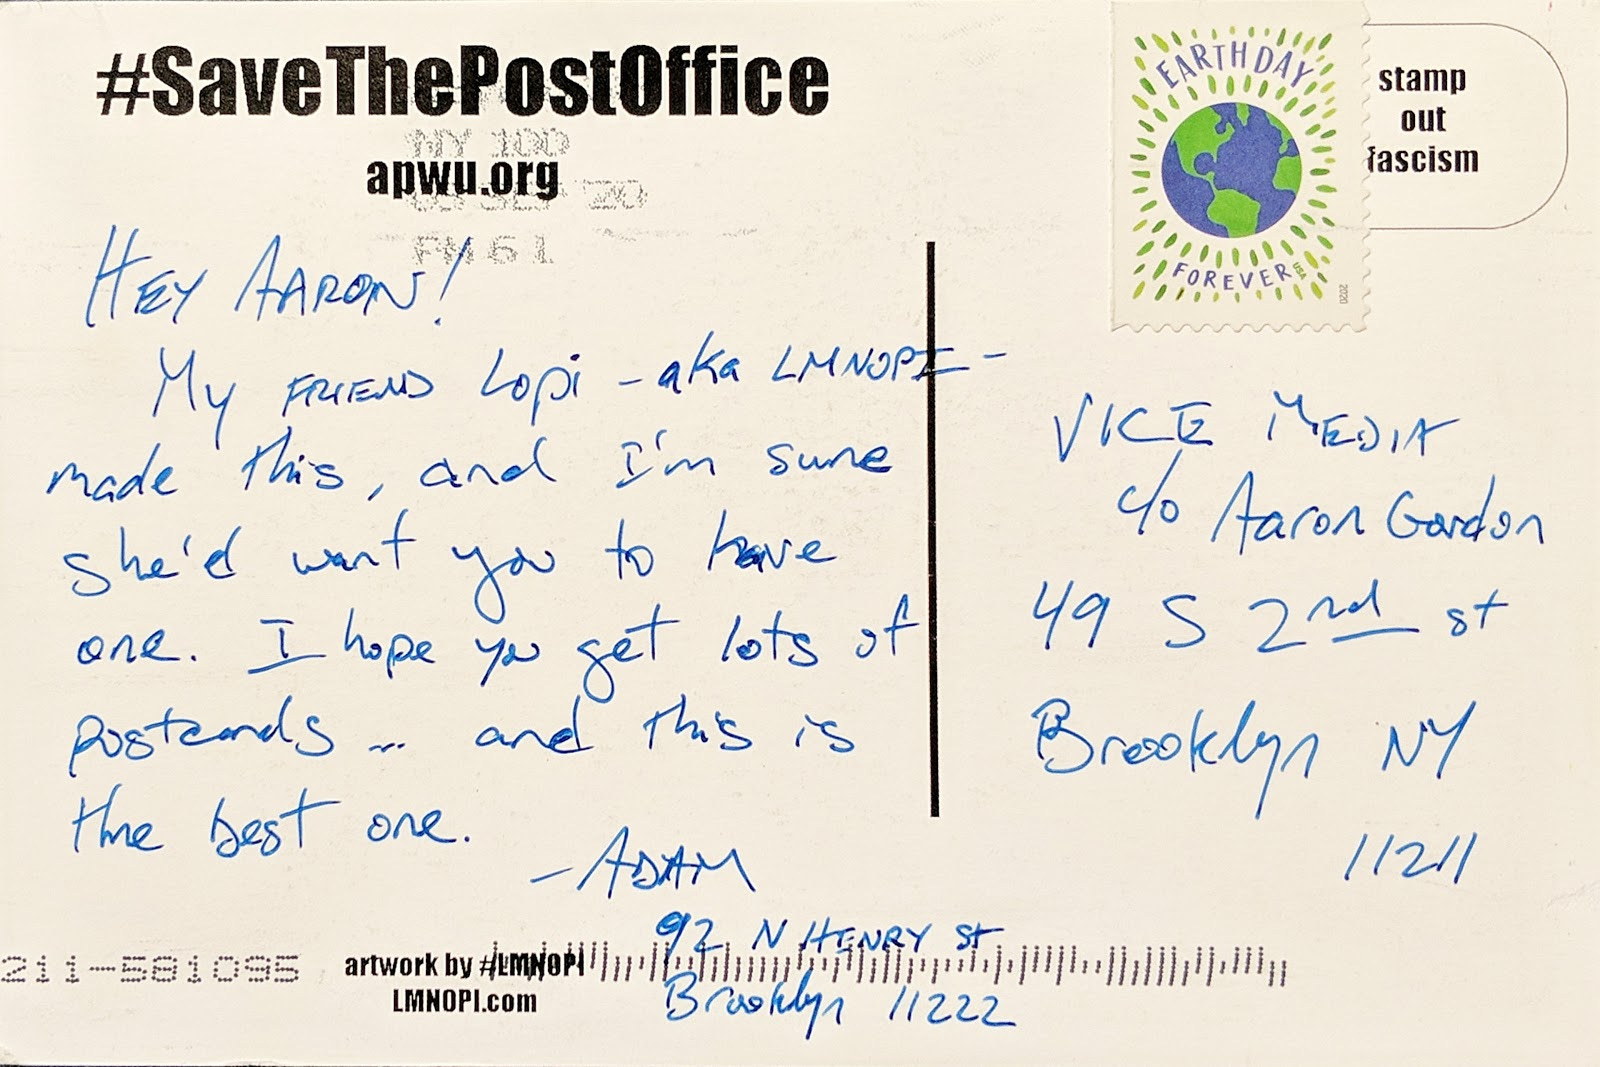 #SaveThePostOffice
apwu.org
NY 100
20
PM 6 L
EARTH DAY
FOREVER
USA
2020
stamp
out
fascism
HEY AARON!
My FRIEND Lopi - aka LMNOPI -
made this, and I'm sure
she'd want you to have
one. I hope you get lots of
postcards ... and this is
the best one.
- ADAM
92 N HENRY St
Brooklyn 11222
VICE MEDIA
c/o Aaron Gordon
49 S 2nd st
Brooklyn NY
11211
211-581095
artwork by #LMNOPI
LMNOPI.com